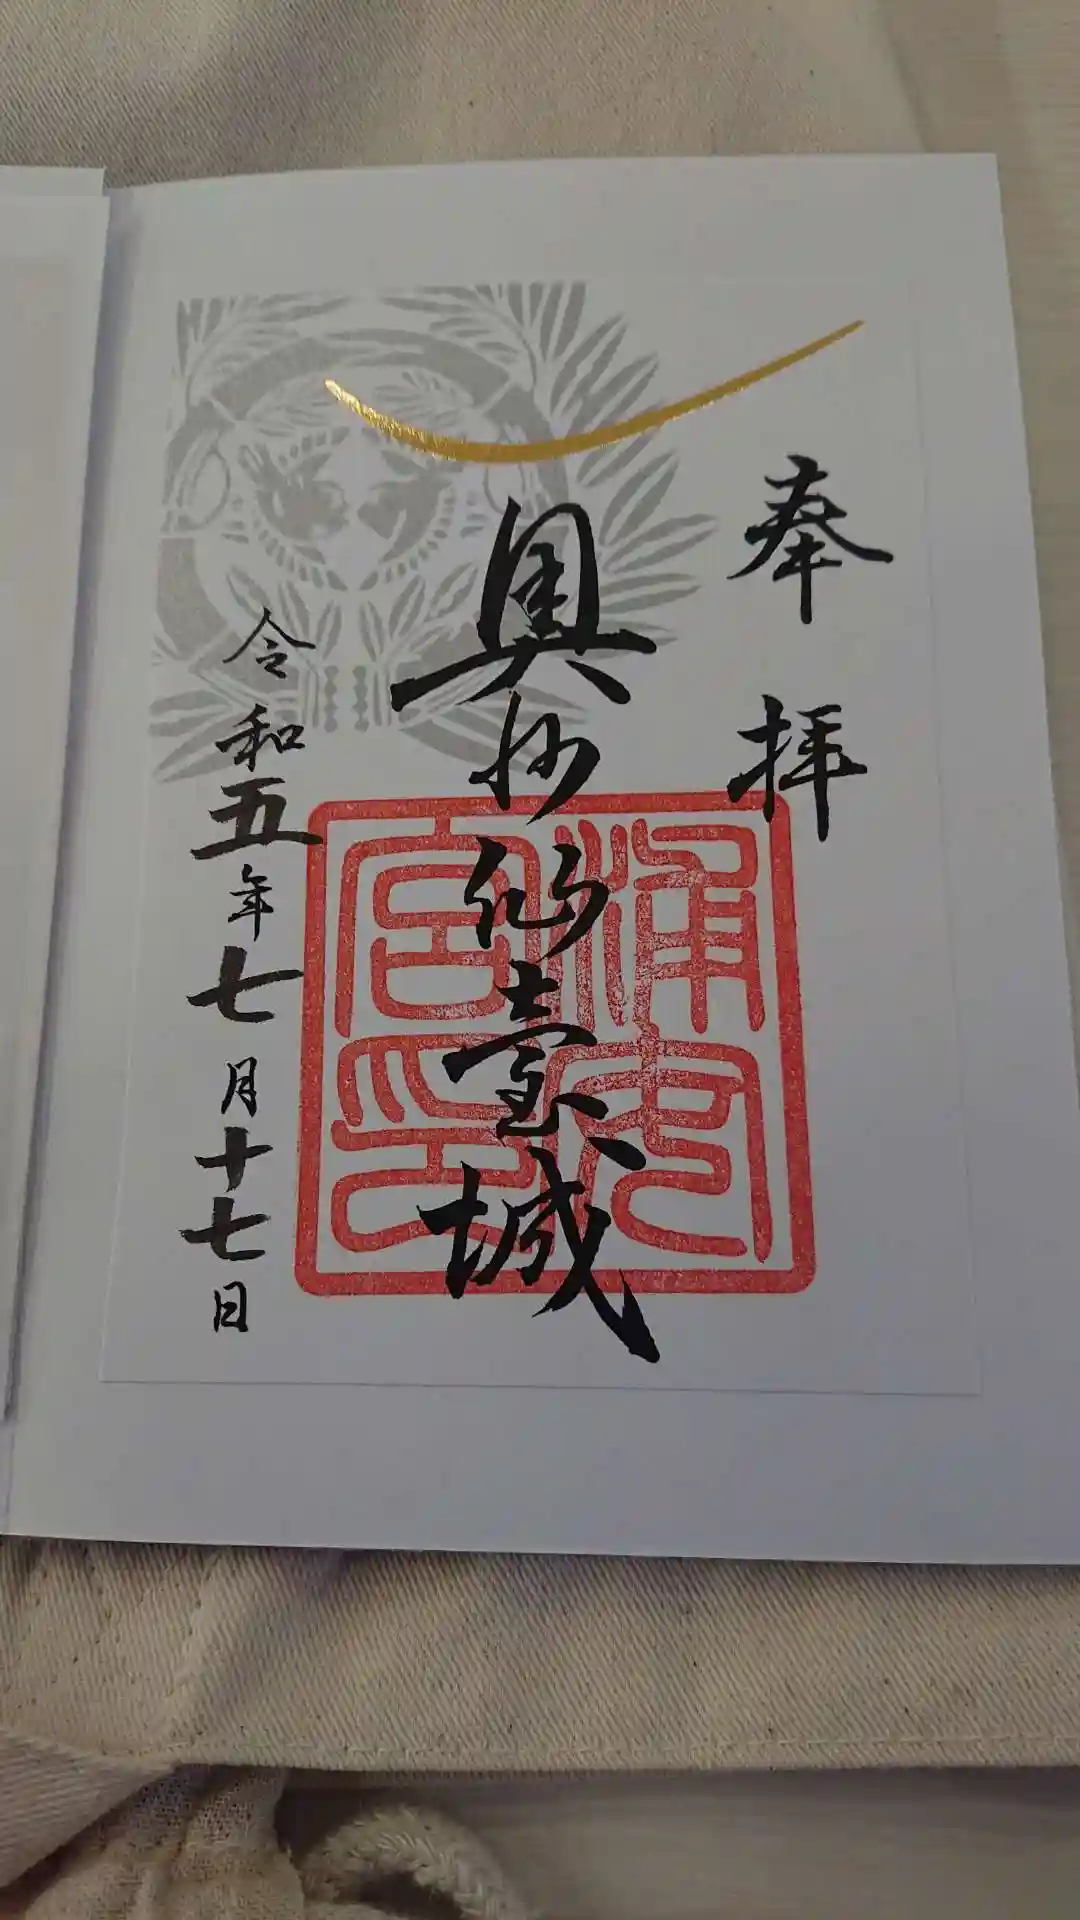 奉拝
奥州仙臺城
浦安宮印
令和五年七月十七日